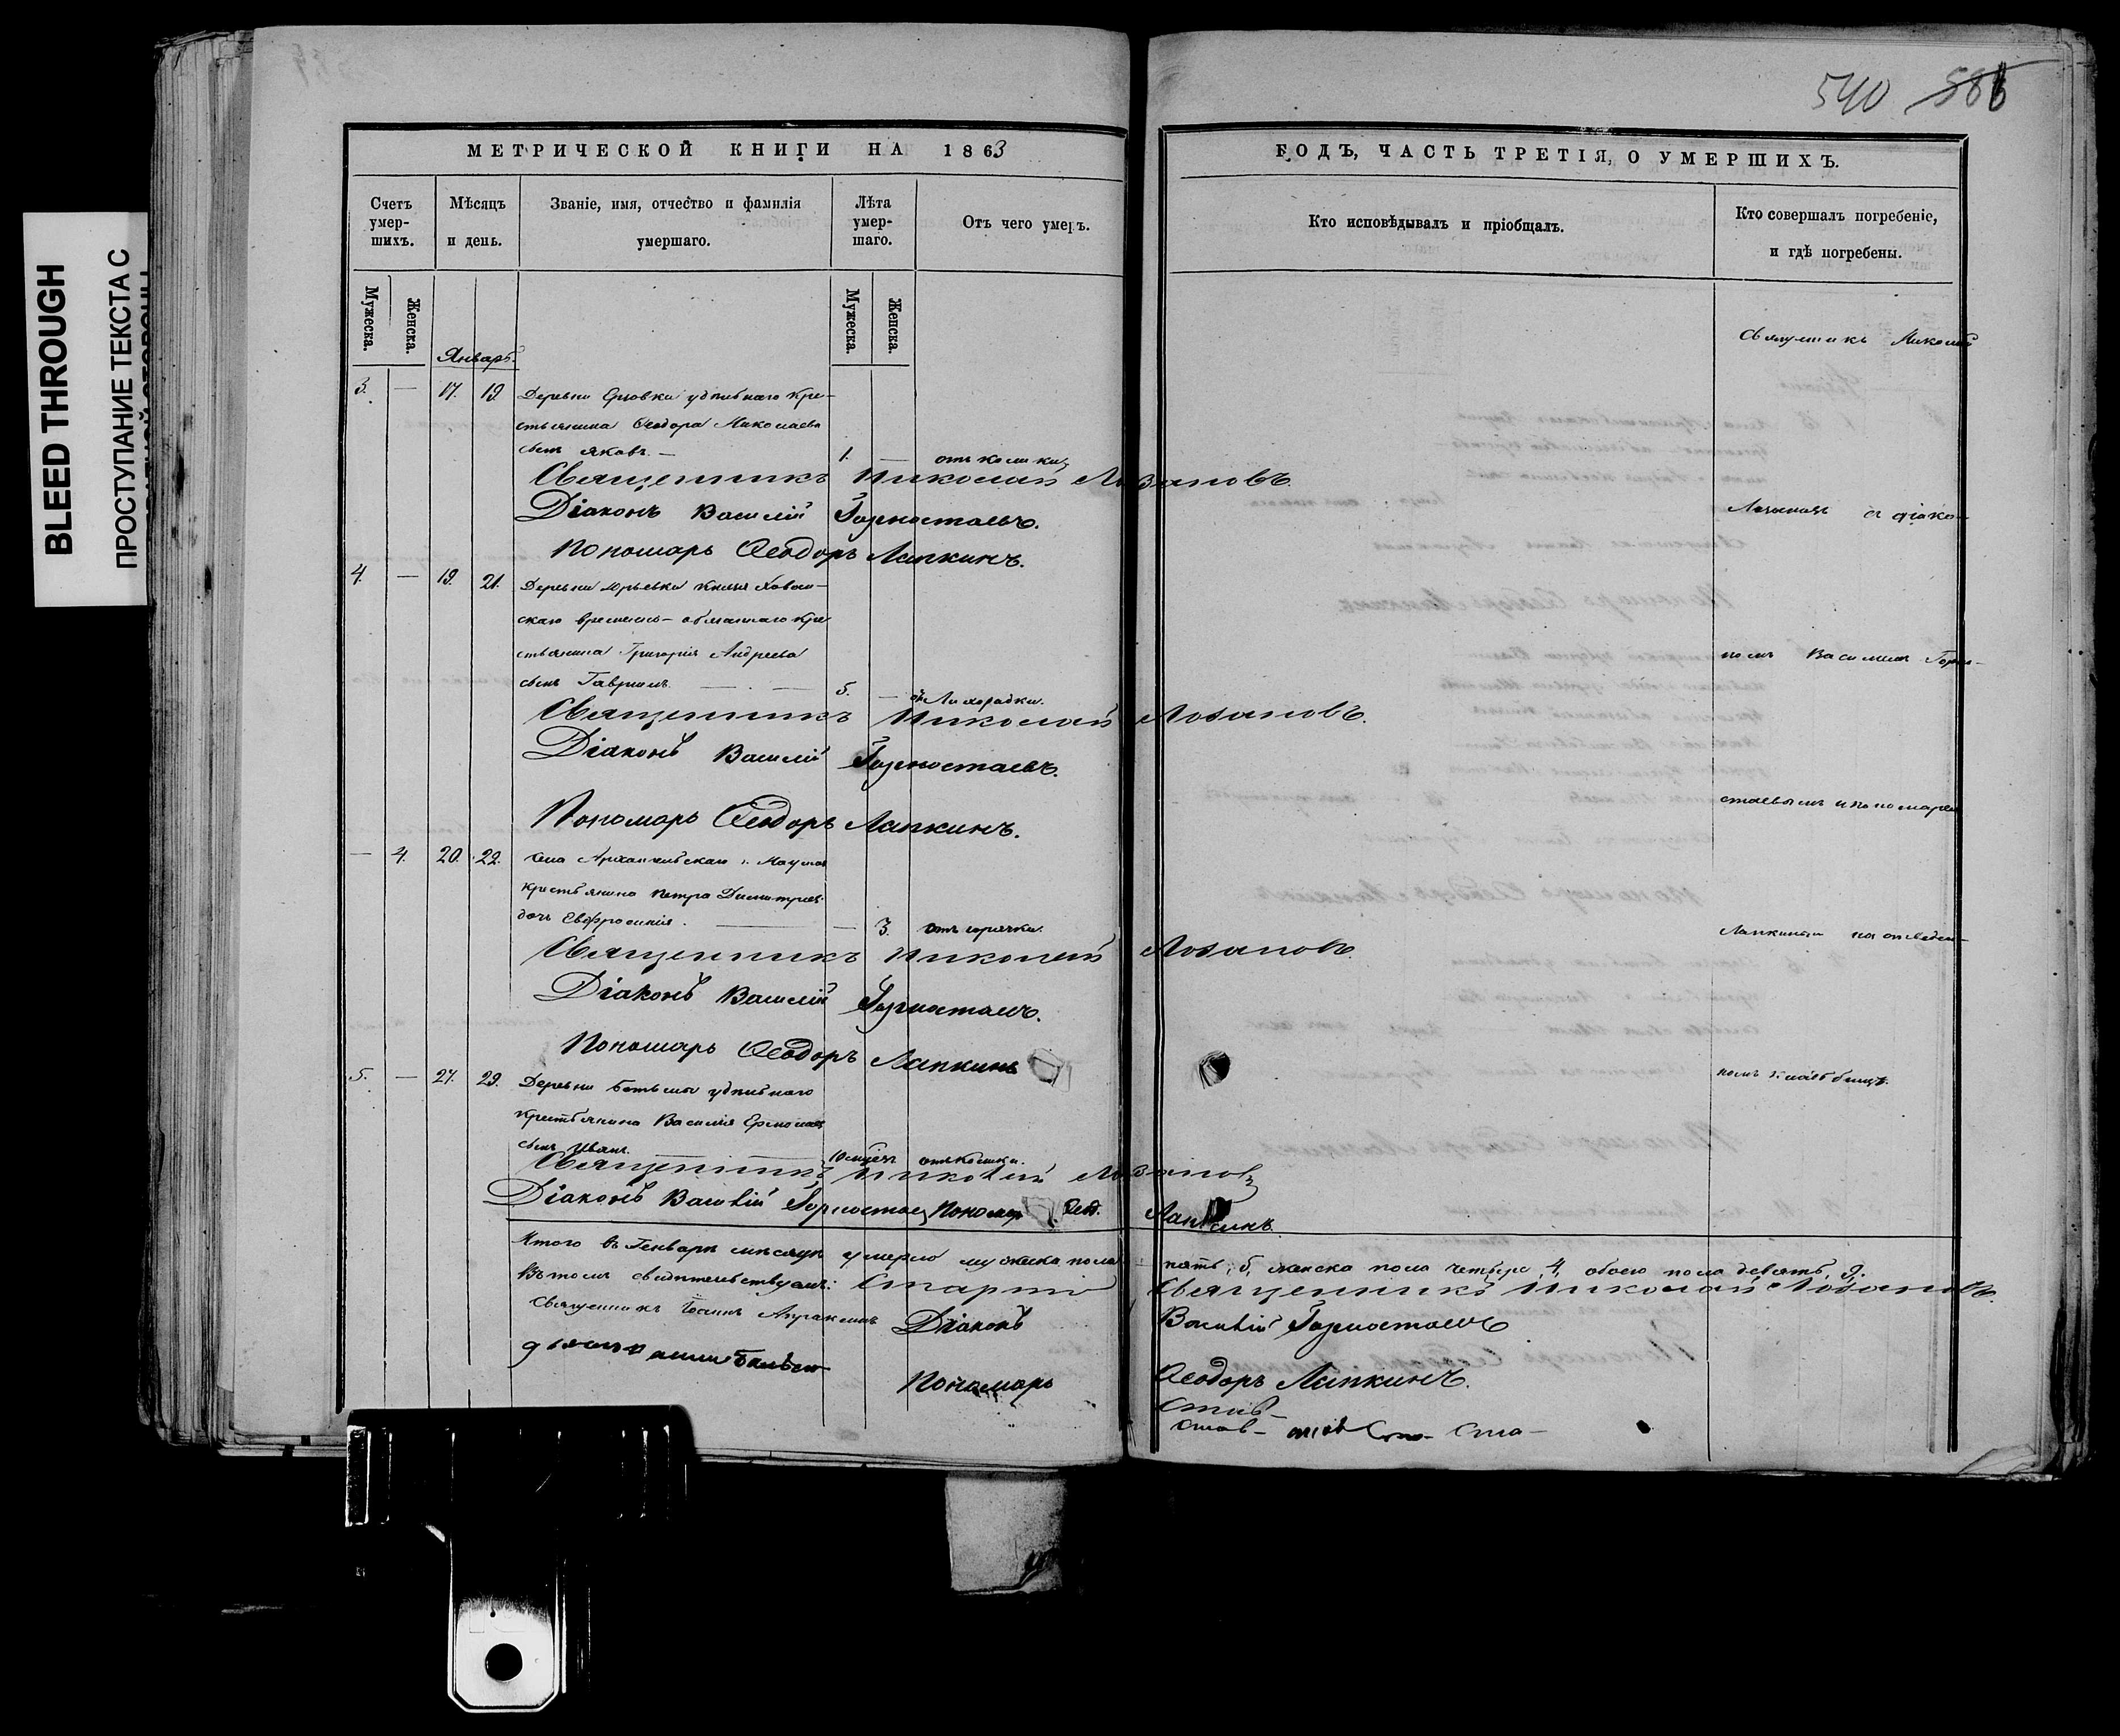 BLEED THROUGH
ПРОСТУПАНИЕ ТЕКСТА С
540 586
МЕТРИЧЕСКОЙ КНИГИ НА 1863
Счетъ умер-шихъ.
Мѣсяцъ и день.
Званіе, имя, отчество и фамилія умершаго.
Лѣта умер-шаго.
Отъ чего умеръ.
Мужеска.
Женска.
Мужеска.
Женска.
Январь.
3. — 17. 19. Деревни удѣльнаго кре-
стьянина Ѳеодора Николаева
сынъ Яковъ. — 1. — отъ колики
Священникъ Николай Лозановъ.
Діаконъ Василій Горностаевъ.
Пономарь Ѳеодоръ Лапкинъ.
4. — 19. 21. Деревни Юрьевки Князя Хован-
скаго временно-обязаннаго кре
стьянина Григорія Андреева
сынъ Гавріилъ. — 5. — отъ Лихорадки.
Священникъ Николай Лозановъ.
Діаконъ Василій Горностаевъ.
Пономарь Ѳеодоръ Лапкинъ.
— 4. 20. 22. Села Архангельскаго
крестьянина Петра Димитріева
дочь Евфросинія. — 3. отъ горячки.
Священникъ Николай Лозановъ.
Діаконъ Василій Горностаевъ.
Пономарь Ѳеодоръ Лапкинъ
5. — 27. 29. Деревни удѣльнаго
крестьянина Василія Ермолаева
сынъ Иванъ. отъ колики.
Священникъ Николай Лозановъ
Діаконъ Василій Горностаевъ Пономарь Ѳеод. Лапкинъ.
Итого въ Генварѣ мѣсяцѣ умерло мужеска пола пять, 5, женска пола четыре, 4, обоего пола девять, 9.
Въ томъ свидѣтельствуемъ: Священникъ Николай Лозановъ.
Священникъ Іоаннъ Діаконъ Василій Горностаевъ
Пономарь Ѳеодоръ Лапкинъ.
ГОДЪ, ЧАСТЬ ТРЕТІЯ, О УМЕРШИХЪ.
Кто исповѣдывалъ и пріобщалъ.
Кто совершалъ погребеніе, и гдѣ погребены.
Священникъ Николай
Лозановъ съ діако-
номъ Василіемъ Горно-
стаевымъ и пономаремъ
Лапкинымъ на отведен-
номъ кладбищѣ.